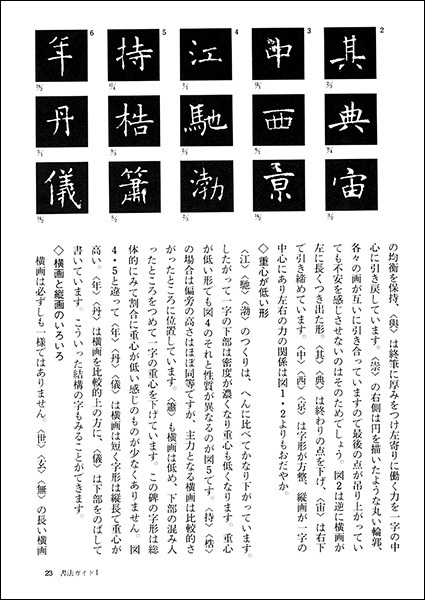 2
其
典
宙
3
中
西
京
4
江
馳
渤
5
持
簫
6
年
丹
儀
の均衡を保持、〈與〉は終筆に厚みをつけ左寄りに働く力を一字の中
心に引き戻しています。〈崇〉の右側は円を描いたような丸い輪郭
各々の画が互いに引き合っていますので最後の点が吊り上がってい
ても不安を感じさせないのはそのためでしょう。図2は逆に横画が
左に長くつき出た形。〈其〉〈典〉は終わりの点を下げ、〈宙〉は右下
で引き締めています。〈中〉〈西〉〈京〉は字形が方整、縦画が一字の
中心にあり左右の力の関係は図1・2よりもおだやか。
◇重心が低い形
〈江〉〈馳〉〈渤〉のつくりは、へんに比べてかなり下がっています。
したがって一字の下部は密度が濃くなり重心も低くなります。重心
が低い形でも図4のそれと性質が異なるのが図5です。〈持〉
の場合は偏旁の高さはほぼ同等ですが、主力となる横画は比較的さ
がったところに位置しています。〈簫〉も横画は低め、下部の混み入
ったところをつめて一字の重心を下げています。この碑の字形は総
体的にみて割合に重心が低い感じのものが少なくありません。図
4・5と違って〈年〉〈丹〉〈儀〉は横画は短く字形は縦長で重心が
高い。〈年〉〈丹〉は横画を比較的上の方に、〈儀〉は下部をのばして
書いています。こういった結構の字もみることができます。
◇横画と縦画のいろいろ
横画は必ずしも一様ではありません。〈世〉〈玄〉〈無〉の長い横画
23 書法ガイド1